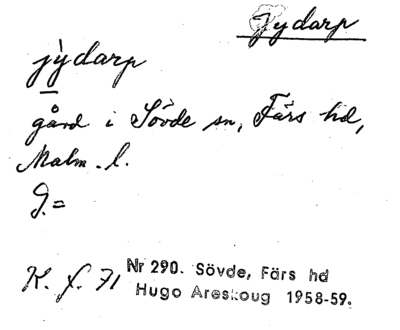 Jydarp
jỳdarp
gård i Sövde sn, Färs hd,
Malm. l.
G. =
K. f. 71
Nr 290. Sövde, Färs hd
Hugo Areskoug 1958-59.